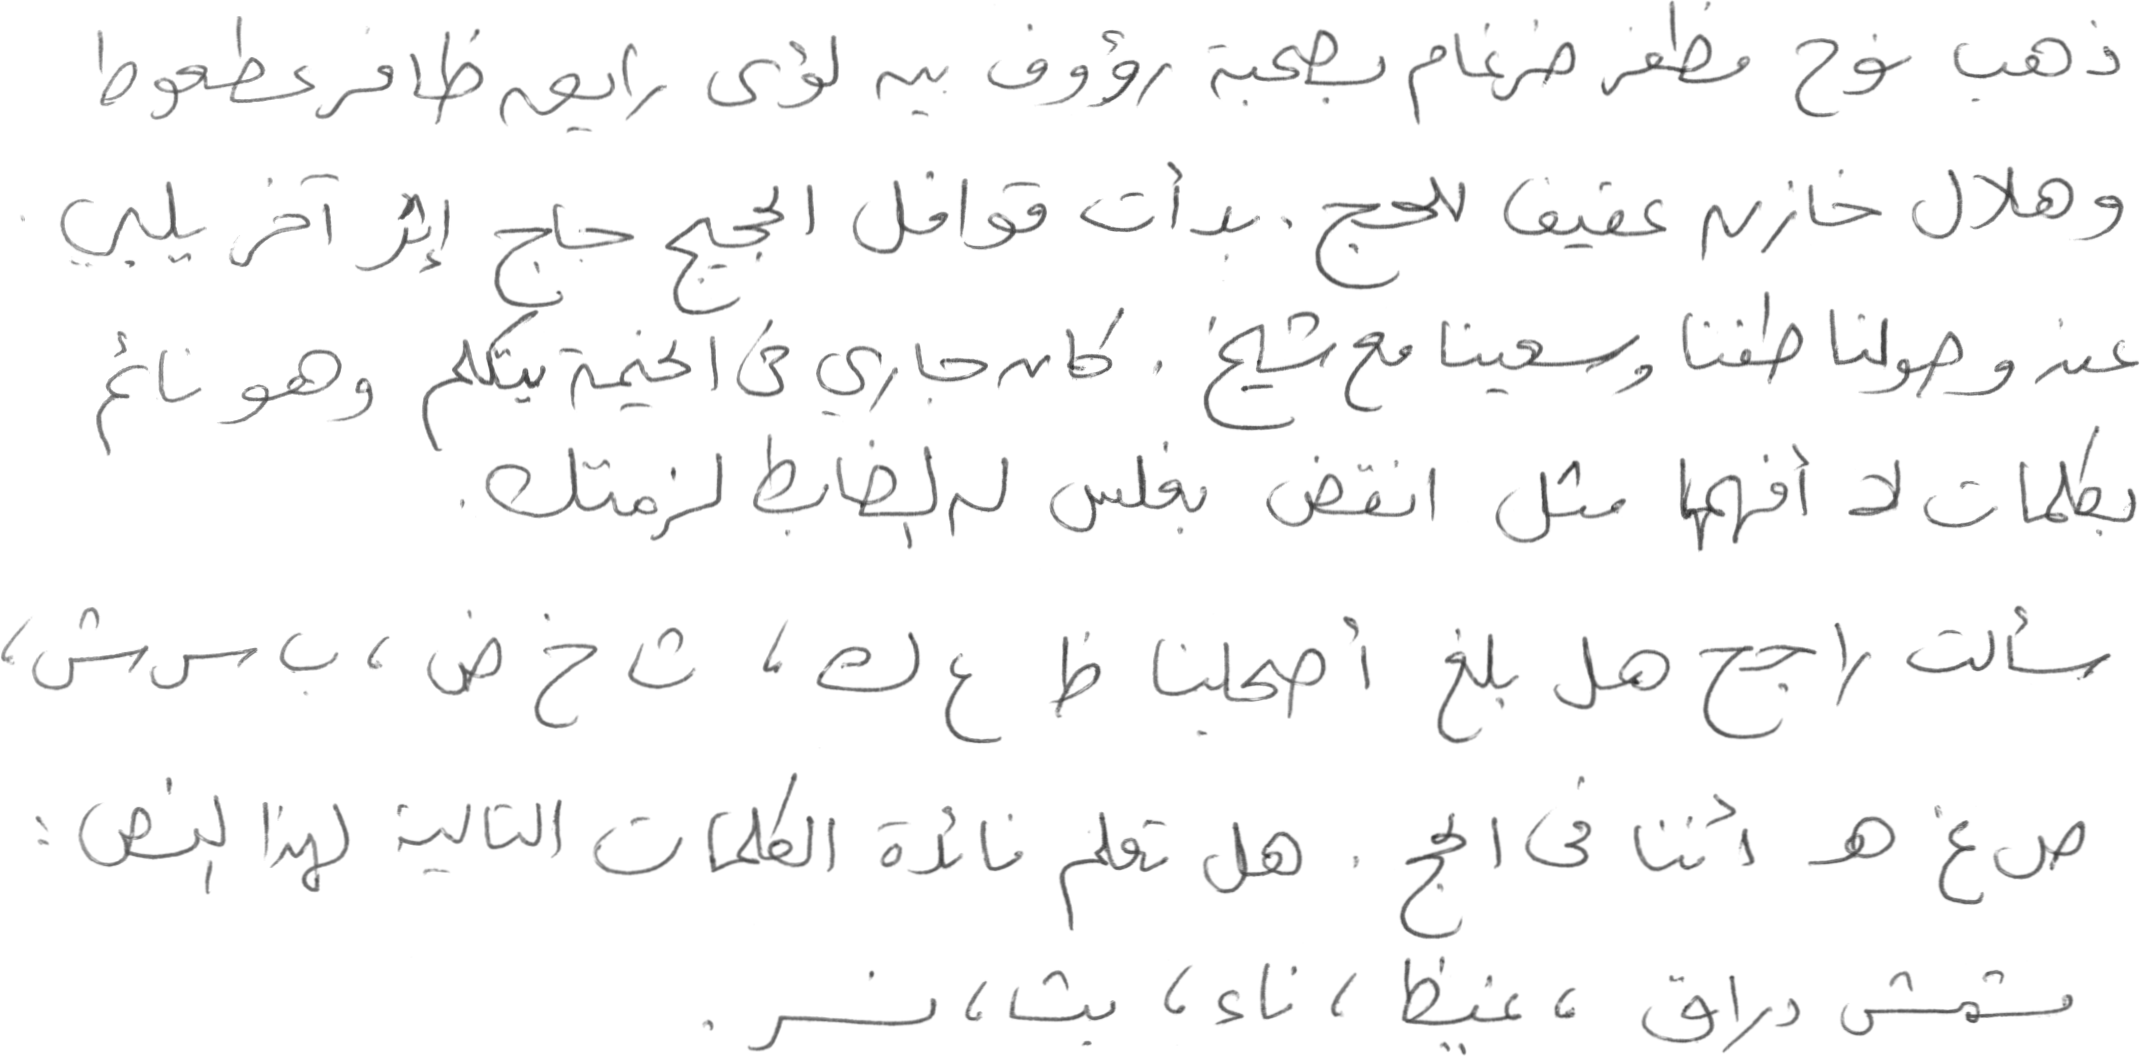 ذهب نوح مظفر ضرغام بصحبة رؤوف بيه لؤى رايعه ظافر عطعوط
وهلال خازن عفيف للحج. بدأت قوافل الحجيج حاج إثر آخر يلبي.
عند وصولنا طفنا وسعينا مع شيخ. كان جاري فى الخيمة يتكلم وهو نائم
بكلمات لا أفهمها مثل انقض بغلس له لضابط لزمتك.
سألت راجح هل بلغ أصحابنا ظ ع ك، ث خ ض، ب س ش،
ص غ هـ أننا فى الحج. هل تعلم فائدة الكلمات التالية لهذا النص:
مشمش دراق، غيظ، ناء، بث، نسر.